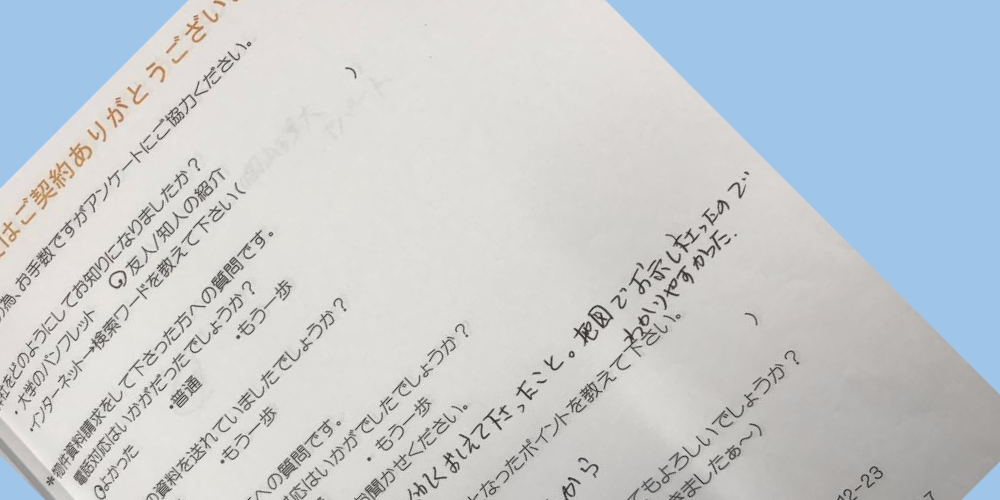 はご契約ありがとうござい
為、お手数ですがアンケートにご協力ください。
社をどのようにしてお知りになりましたか？
・大学のパンフレット 友人/知人の紹介
インターネット→検索ワードを教えて下さい( )
*物件資料請求をして下さった方への質問です。
電話対応はいかがだったでしょうか？
よかった ・普通 ・もう一歩
の資料を送れていましたでしょうか？
・もう一歩
への質問です。
対応はいかがでしたでしょうか？
・もう一歩
お聞かせください。
くおしえて下さったこと。地図でお示し下さったので
わかりやすかった.
となったポイントを教えて下さい。
から )
てもよろしいでしょうか？
きましたぁ～)
12-23